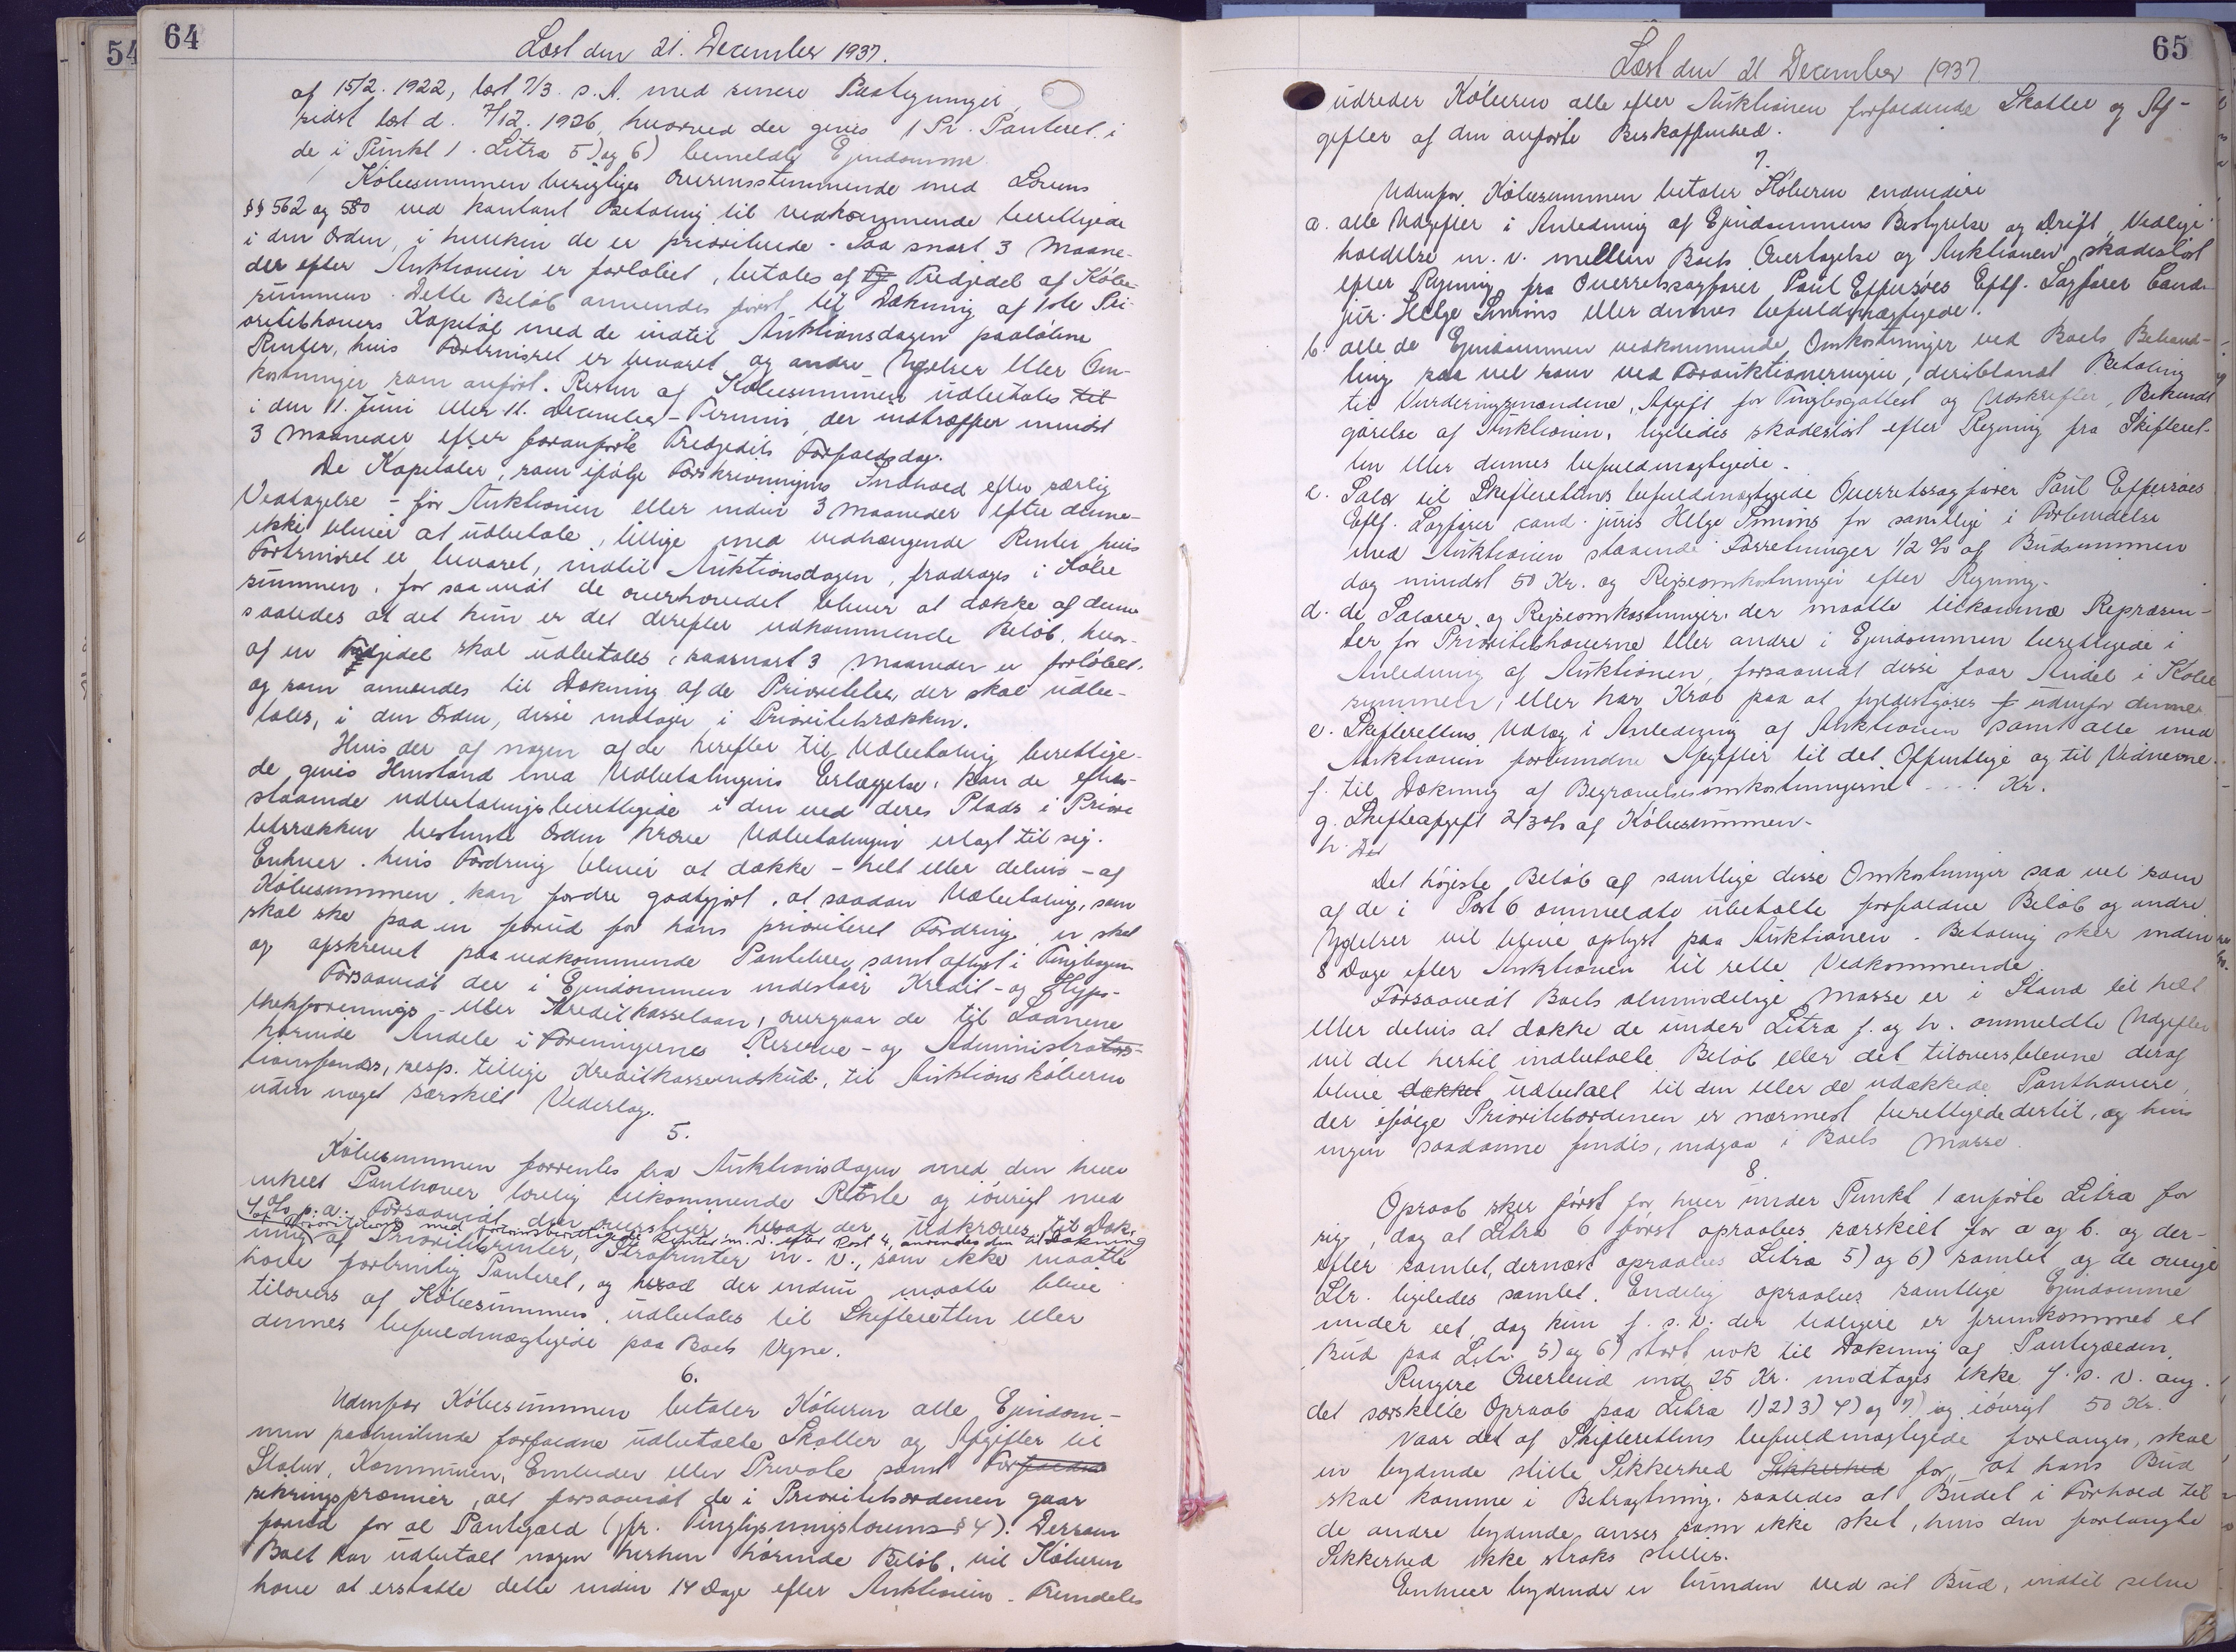 54
64
Læst den 21. December 1937.
af 15/2. 1922, læst 7/3. s. A. med senere Paategninger,
sidst læst d. 7/12. 1926, hvorved der gives 1 Pr. Panteret i
de i Punkt 1. Litra 5) og 6) bemeldte Ejendomme
Købesummen berigtiges overensstemmende med Lovens
§§ 562 og 580 ved kontant Betaling til vedkommende berettigede
i den Orden, i hvilken de er prioriterede. Saa snart 3 Maane-
der efter Auktionen er forløbet, betales af Tredjedel af Købe-
summen. Dette Beløb anvendes først til Dækning af 1ste Pri-
oritetshavers Kapital med de indtil Auktionsdagen paaløbne
Renter, hvis Fortrinsret er bevaret og andre Ydelser eller Om-
kostninger som anført. Resten af Købesummen udbetales til
i den 11. Juni eller 11. December-Termin, der indtræffer mindst
3 Maaneder efter foranførte Tredjedels Forfaldsdag.
De Kapitaler, som ifølge Forskrivningens Indhold efter særlig
Vedtagelse - før Auktionen eller inden 3 Maaneder efter denne -
ikke bliver at udbetale, tillige med vedhængende Renter hvis
Fortrinsret er bevaret, indtil Auktionsdagen, fradrages i Købe
summen, for saa vidt de overhovedet bliver at dække af denne
saaledes at det kun er det derefter udkommende Beløb, hvor-
af en Tredjedel skal udbetales, saasnart 3 Maaneder er forløbet.
og som anvendes til Dækning af de Prioriteter, der skal udbe-
tales, i den Orden, disse indtager i Prioritetsrækken.
Hvis der af nogen af de herefter til Udbetaling berettige-
de gives Henstand med Udbetalingens Erlæggelse, kan de efter-
staaende udbetalingsberettigede i den ved deres Plads i Priori
tetsrækken bestemte Orden kræve Udbetalingen erlagt til sig.
Enhver, hvis Fordring bliver at dække - helt eller delvis - af
Købesummen, kan fordre godtgjort, at saadan Udbetaling, som
skal ske paa en forud for hans prioriteret Fordring, er sket
og afskrevet paa vedkommende Pantebrev samt aflyst i Tingbogen
Forsaavidt der i Ejendommen indestaar Kredit- og Hypo-
thekforenings- eller Kreditkasselaan, overgaar de til Laanene
hørende Andele i Foreningerne Reserve- og Administra
tionsfonds, resp. tillige Kreditkasseindskud, til Auktionskøberen
uden noget særskilt Vederlag.
5.
Købesummen forrentes fra Auktionsdagen med den hver
enkelt Panthaver lovlig tilkommende Rente og iøvrigt med
4 % p. a. Forsaavidt den overstiger hvad der udkræves til Dæk
af Prioriteterne med fortrinsberettigede Renter m. v. efter Post 4, anvendes den til Dækning
ning af Prioritetsrenter, Strafrenter m. v., som ikke maatte
have fortrinlig Panteret, og hvad der endnu maatte blive
tilovers af Købesummen, udbetales til Skifteretten eller
dennes befuldmægtigede paa Boets Vegne.
6.
Udenfor Købesummen betaler Køberen alle Ejendom-
men paahvilende forfaldne udbetalte Skatter og Afgifter til
Staten, Kommunen, Embeder eller Private samt Forfaldne
sikringspræmier, alt forsaavidt de i Prioritetsordenen gaar
forud for al Pantegæld (jfr. Tinglysningslovens § 4). Dersom
Boet har udbetalt nogen herhen hørende Beløb, vil Køberen
have at erstatte dette inden 14 Dage efter Auktionen. Fremdeles
65
Læst den 21 December 1937
udreder Køberen alle efter Auktionen forfaldende Skatter og Af-
gifter af den anførte Beskaffenhed.
7.
Udenfor Købesummen betaler Køberen endvidere
a. alle Udgifter i Anledning af Ejendommens Bestyrelse og Drift, Vedlige-
holdelse m. v. mellem Boets Overtagelse og Auktionen skadesløst
efter Regning fra Overretssagfører Paul Eppersøes Eftf. Sagfører Cand.
jur. Helge Simims eller dennes befuldmægtigede.
b. alle de Ejendommen vedkommende Omkostninger ved Boets Behand-
ling saa vel som ved Forauktioneringen, deriblandt Betaling
til Vurderingsmændene, Afgift for Tingbogattest og Udskrifter, Bekendt
gørelse af Auktionen, ligeledes skadesløst efter Regning fra Skifteret-
ten eller dennes befuldmægtigede.
c. Salær til Skifterettens befuldmægtigede Overretssagfører Paul Eppersøes
Eftf. Sagfører cand. juris Helge Simims for samtlige i Forbindelse
med Auktionen staaende Forretninger 1/2 % af Budsummen
dog mindst 50 Kr. og Rejseomkostninger efter Regning.
d. de Salærer og Rejseomkostninger der maatte tilkomme Repræsen-
ter for Prioritetshaverne eller andre i Ejendommen berettigede i
Anledning af Auktionen, forsaavidt disse faar Andel i Købe
summen, eller har Krav paa at fyldestgøres udenfor denne
e. Skifterettens Udlæg i Anledning af Auktionen samt alle med
Auktionen forbundne Afgifter til det Offentlige og til Vidnerne.
f. til Dækning af Begravelsesomkostningerne .... Kr.
g. Skifteafgift 2/3 % af Købesummen.
h. Det
Det højeste Beløb af samtlige disse Omkostninger saa vel som
af de i Post 6 ommeldte ubetalte forfaldne Beløb og andre
Ydelser vil blive oplyst paa Auktionen. Betaling sker inden
8 Dage efter Auktionen til rette Vedkommende
Forsaavidt Boets almindelige Masse er i Stand til helt
eller delvis at dække de under Litra f. og h. ommeldte Udgifter
vil det hertil indbetalte Beløb eller det tiloversblevne deraf
blive dækket udbetalt til den eller de udækkede Panthavere,
der ifølge Prioritetsordenen er nærmest berettigede dertil, og hvis
ingen saadanne findes, indgaa i Boets Masse.
8.
Opraab sker først for hver under Punkt 1 anførte Litra for
sig, dog at Litra 6 først opraabes særskilt for a og b. og der-
efter samlet, dernæst opraabes Litra 5) og 6) samlet og de øvrige
Ltr. ligeledes samlet. Endelig opraabes samtlige Ejendomme
under eet, dog kun f. s. v. der tidligere er fremkommet et
Bud paa Litr. 5) og 6) stort nok til Dækning af Pantegælden.
Ringere Overbud end 25 Kr. modtages ikke f. s. v. ang.
det særskilte Opraab paa Litra 1) 2) 3) 4) og 7) og iøvrigt 50 Kr.
Naar det af Skifterettens befuldmægtigede forlanges, skal
en bydende stille Sikkerhed Sikkerhed for, at hans Bud
skal komme i Betragtning, saaledes at Budet i Forhold til
de andre bydende anses som ikke sket, hvis den forlangte
Sikkerhed ikke straks stilles.
Enhver bydende er bunden ved sit Bud, indtil selve